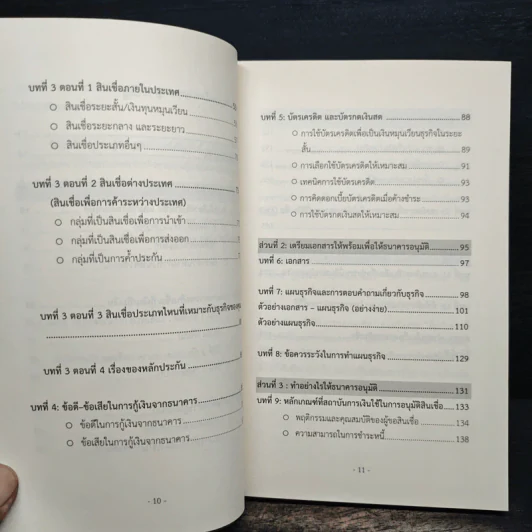 บทที่ 3 ตอนที่ 1 สินเชื่อภายในประเทศ
○ สินเชื่อระยะสั้น/เงินทุนหมุนเวียน
○ สินเชื่อระยะกลาง และระยะยาว
○ สินเชื่อประเภทอื่นๆ
บทที่ 3 ตอนที่ 2 สินเชื่อต่างประเทศ
(สินเชื่อเพื่อการค้าระหว่างประเทศ)
○ กลุ่มที่เป็นสินเชื่อเพื่อการนำเข้า
○ กลุ่มที่เป็นสินเชื่อเพื่อการส่งออก
○ กลุ่มที่เป็นการค้ำประกัน
บทที่ 3 ตอนที่ 3 สินเชื่อประเภทไหนที่เหมาะกับธุรกิจของ
บทที่ 3 ตอนที่ 4 เรื่องของหลักประกัน
บทที่ 4: ข้อดี-ข้อเสียในการกู้เงินจากธนาคาร
○ ข้อดีในการกู้เงินจากธนาคาร
○ ข้อเสียในการกู้เงินจากธนาคาร
- 10 -
บทที่ 5: บัตรเครดิต และบัตรกดเงินสด 88
○ การใช้บัตรเครดิตเพื่อเป็นเงินหมุนเวียนธุรกิจในระยะ
สั้น 89
○ การเลือกใช้บัตรเครดิตให้เหมาะสม 91
○ เทคนิคการใช้บัตรเครดิต 93
○ การคิดดอกเบี้ยบัตรเครดิตเมื่อค้างชำระ 93
○ การใช้บัตรกดเงินสดให้เหมาะสม 94
ส่วนที่ 2: เตรียมเอกสารให้พร้อมเพื่อให้ธนาคารอนุมัติ 95
บทที่ 6: เอกสาร 97
บทที่ 7: แผนธุรกิจและการตอบคำถามเกี่ยวกับธุรกิจ 98
ตัวอย่างเอกสาร – แผนธุรกิจ (อย่างง่าย) 101
ตัวอย่างแผนธุรกิจ 110
บทที่ 8: ข้อควรระวังในการทำแผนธุรกิจ 129
ส่วนที่ 3 : ทำอย่างไรให้ธนาคารอนุมัติ 131
บทที่ 9: หลักเกณฑ์ที่สถาบันการเงินใช้ในการอนุมัติสินเชื่อ 133
○ พฤติกรรมและคุณสมบัติของผู้ขอสินเชื่อ 134
○ ความสามารถในการชำระหนี้ 138
- 11 -